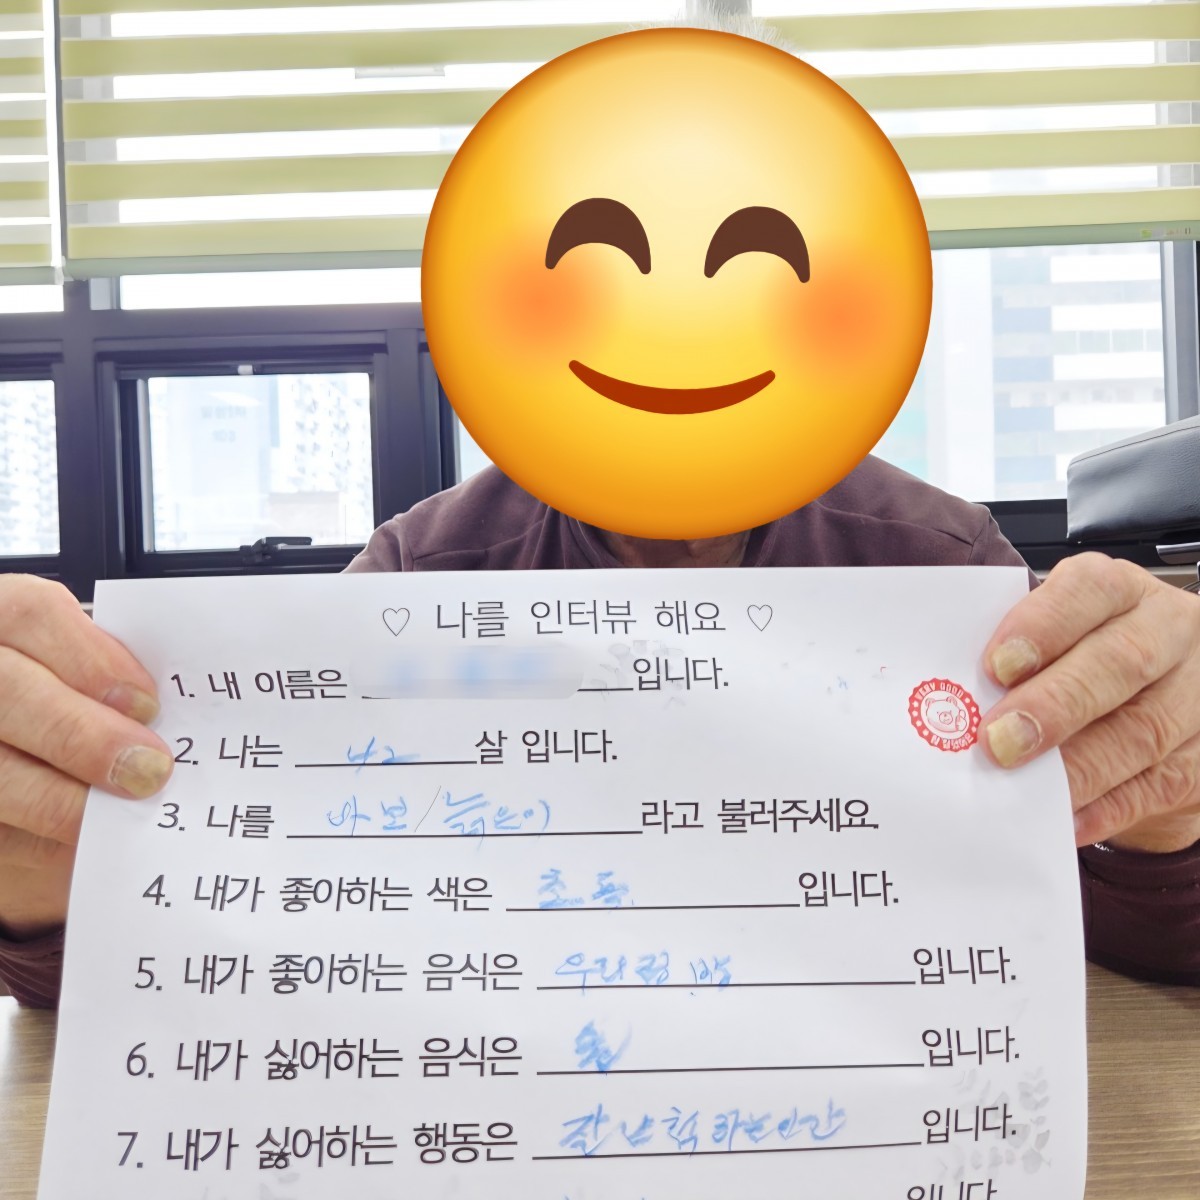 ♡ 나를 인터뷰 해요 ♡
1. 내 이름은 입니다.
VERY GOOD
참 잘했어요
2. 나는 42 살 입니다.
3. 나를 바보/늙은이 라고 불러주세요.
4. 내가 좋아하는 색은 초록 입니다.
5. 내가 좋아하는 음식은 우리집 밥 입니다.
6. 내가 싫어하는 음식은 입니다.
7. 내가 싫어하는 행동은 잘난척하는인간 입니다.
입니다